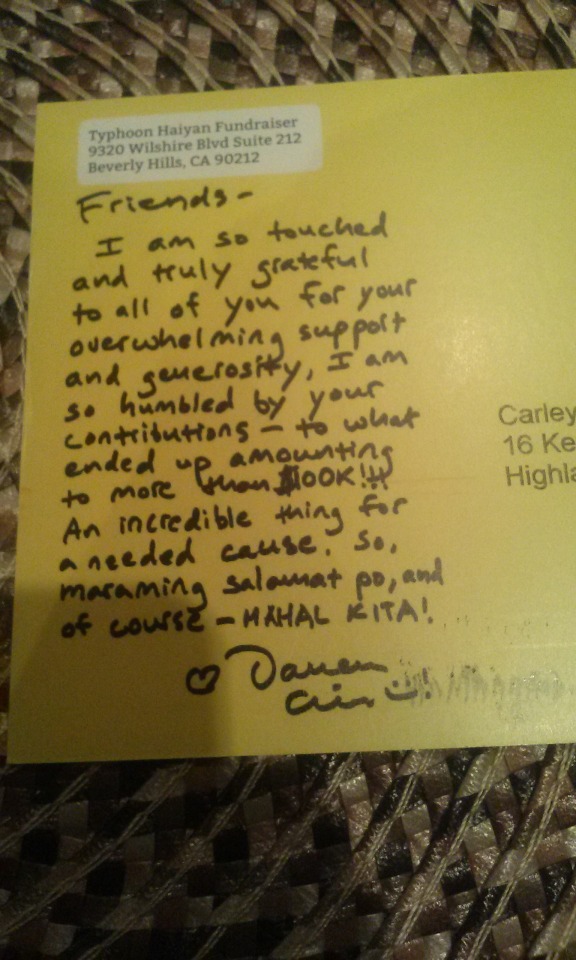 Typhoon Haiyan Fundraiser
9320 Wilshire Blvd Suite 212
Beverly Hills, CA 90212
Friends-
I am so touched
and truly grateful
to all of you for your
overwhelming support
and generosity, I am
so humbled by your
contributions - to what
ended up amounting
to more than $100K!!!
An incredible thing for
a needed cause. So,
maraming salamat po, and
of course - MAHAL KITA!
♡ Darren
Criss :)!
Carley
16 Ke
Highla